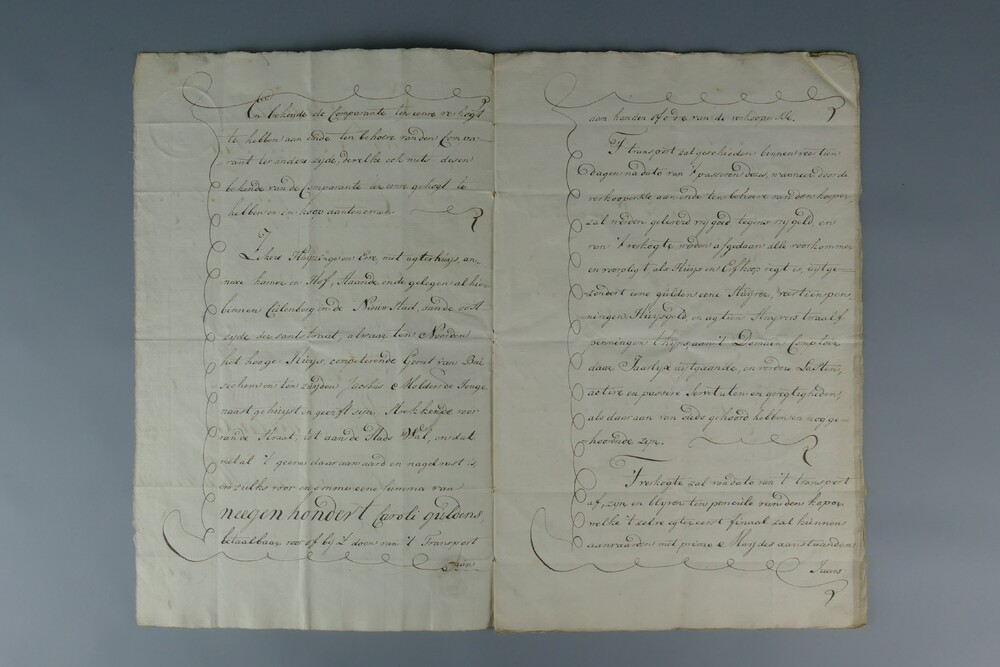 En bekende de Comparante ter eenre verkogt
te hebben aan ende ten behoeve van den Compa-
rant ter andere zyde, dewelke ook mits desen
bekende van de Comparante ter eenre gekogt te
hebben en in koop aantenemen.
Zekere Huyzinge en Erve met agterhuys, an-
nexe kamer en Hof, staande ende gelegen alhier
binnen Culenborg in de Nieuw Stad, aan de oost
zyde der zantstraat, alwaar ten Noorden
het hooge Huys, competerende Gerrit van
en ten zuyden Jacobus Mulder de Jonge
naast gehuyst en geerft zijn Strekkende voor
van de Straat, tot aan de Stads Wal, en dat
met al 't geene daar aan aard en nagelvast is,
en zulks voor en om eene somma van
neegen hondert Caroli guldens,
betaalbaar voor of by 't doen van 't Transport
aan
aan handen of ordre van de verkooperse.
'T transport zal geschieden binnen veertien
dagen na dato van 't passeren dezes, wanneer door de
verkooperse aan ende ten behoeve van den koper
zal worden geleverd vry goed tegens vry geld, en
van 't verkogte worden afgedaan alle voorkommer
en voorpligt als Huys en Erfkoop regt is, uytge-
zondert eene gulden eene stuyver, veertien pen-
ningen Huysgeld en agtien stuyvers twaalf
penningen thyns aan 't Domein Comptoir
daar Jaarlyx uytgaande, en verdere Lasten,
active en passive servituten en geregtigheden,
als daar aan van ouds gehoord hebben en nog ge-
hoorende zyn.
'T verkogte zal van dato van 't transport
af, zyn en blyven ten pericule van den koper
welke 't zelve egter eerst finaal zal kunnen
aanvaarden met primo May des aanstaanden
Jaars